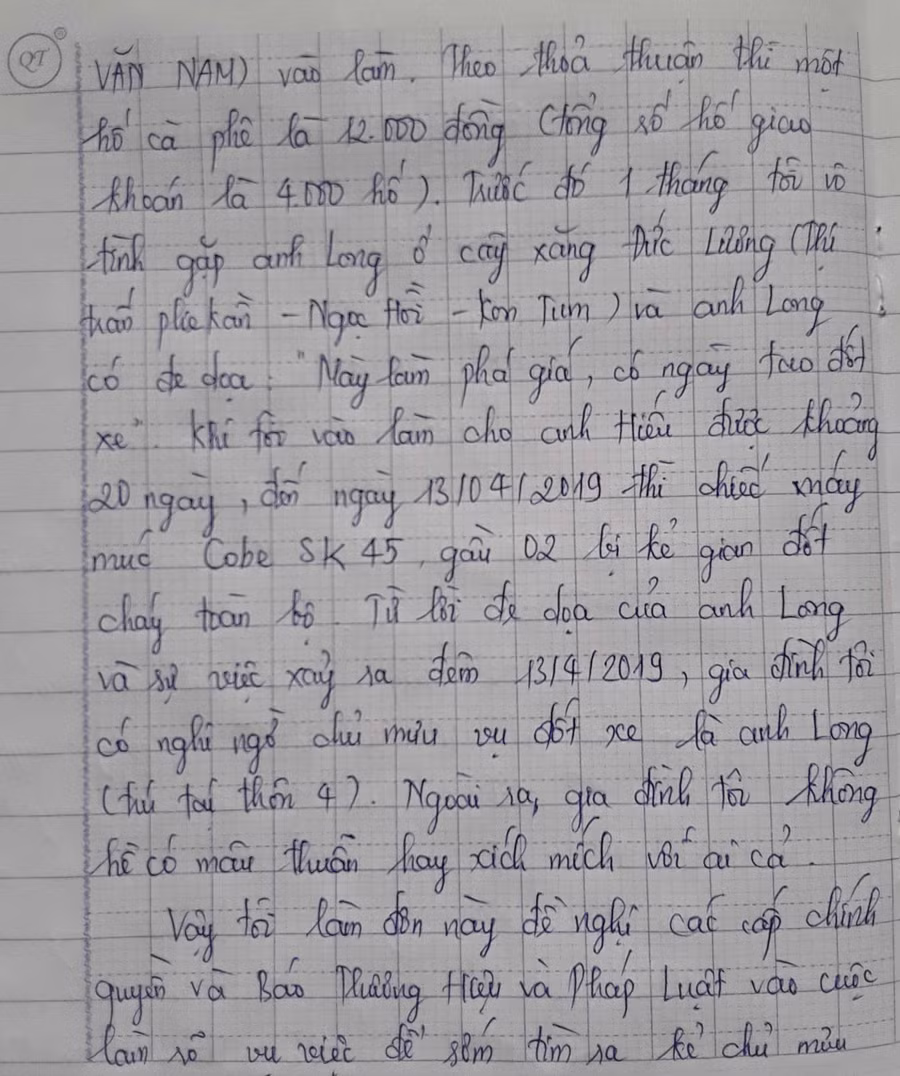 QT
VĂN NAM) vào làm. Theo thoả thuận thì một
hố cà phê là 12.000 đồng (tổng số hố giao
khoán là 4.000 hố). Trước đó 1 tháng tôi vô
tình gặp anh Long ở cây xăng Đức Lương (Thị
trấn pleikần - Ngọc Hồi - Kon Tum) và anh Long
có đe dọa: "Mày làm phá giá, có ngày tao đốt
xe". Khi tôi vào làm cho anh Hiếu được khoảng
20 ngày, đến ngày 13/04/2019 thì chiếc máy
múc Cobe SK 45, gầu 02 bị kẻ gian đốt
cháy toàn bộ. Từ lời đe dọa của anh Long
và sự việc xảy ra đêm 13/4/2019, gia đình tôi
có nghi ngờ chủ mưu vụ đốt xe là anh Long
(trú tại thôn 4). Ngoài ra, gia đình tôi không
hề có mâu thuẫn hay xích mích với ai cả.
Vậy tôi làm đơn này đề nghị các cấp chính
quyền và Báo Thương Hiệu và Pháp Luật vào cuộc
làm rõ vụ việc để sớm tìm ra kẻ chủ mưu